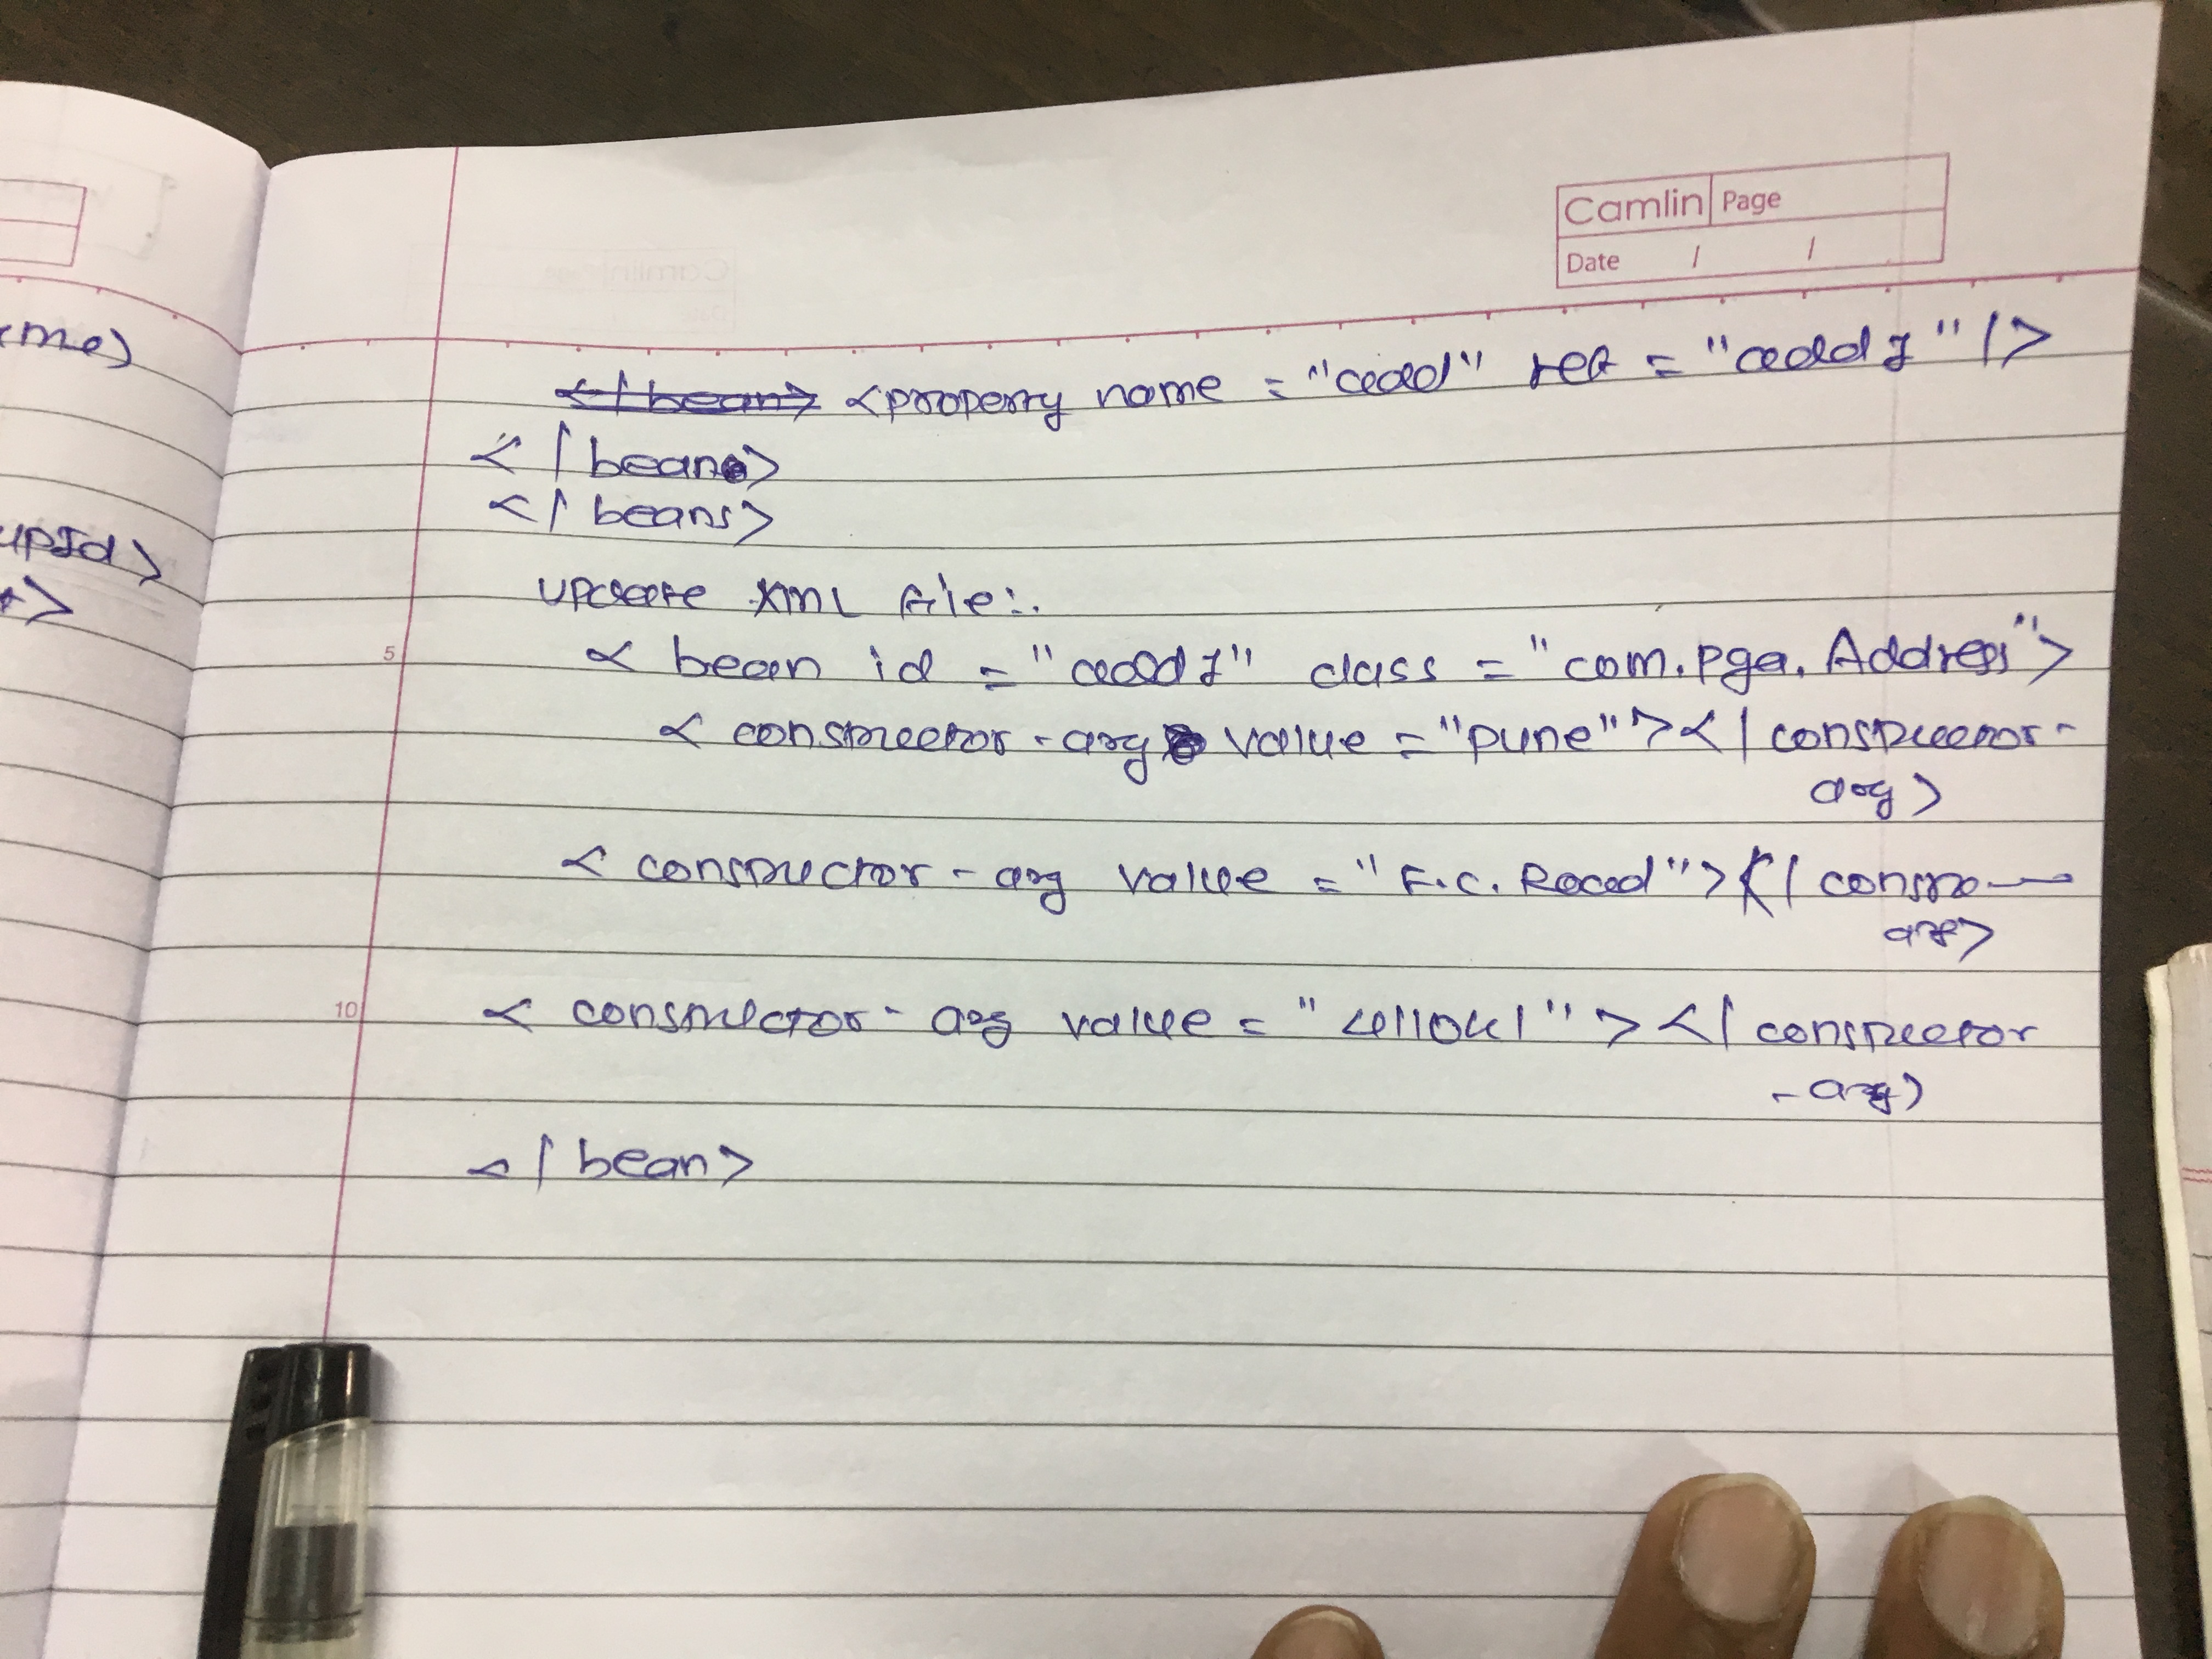 rme)
ripsd>
>
Camlin Page
Date / /
</bean> <property name = "cadd" ref = "cadd1" />
</bean>
</beans>
update xml file:.
5
< bean id = "cadd1" class = "com.pga.Address">
< constructor-arg value = "pune"></constructor-
arg>
< constructor-arg value = "F.C. Road"></constr——
arg>
10
< constructor-arg value = "411041"></constructor
-arg>
</bean>